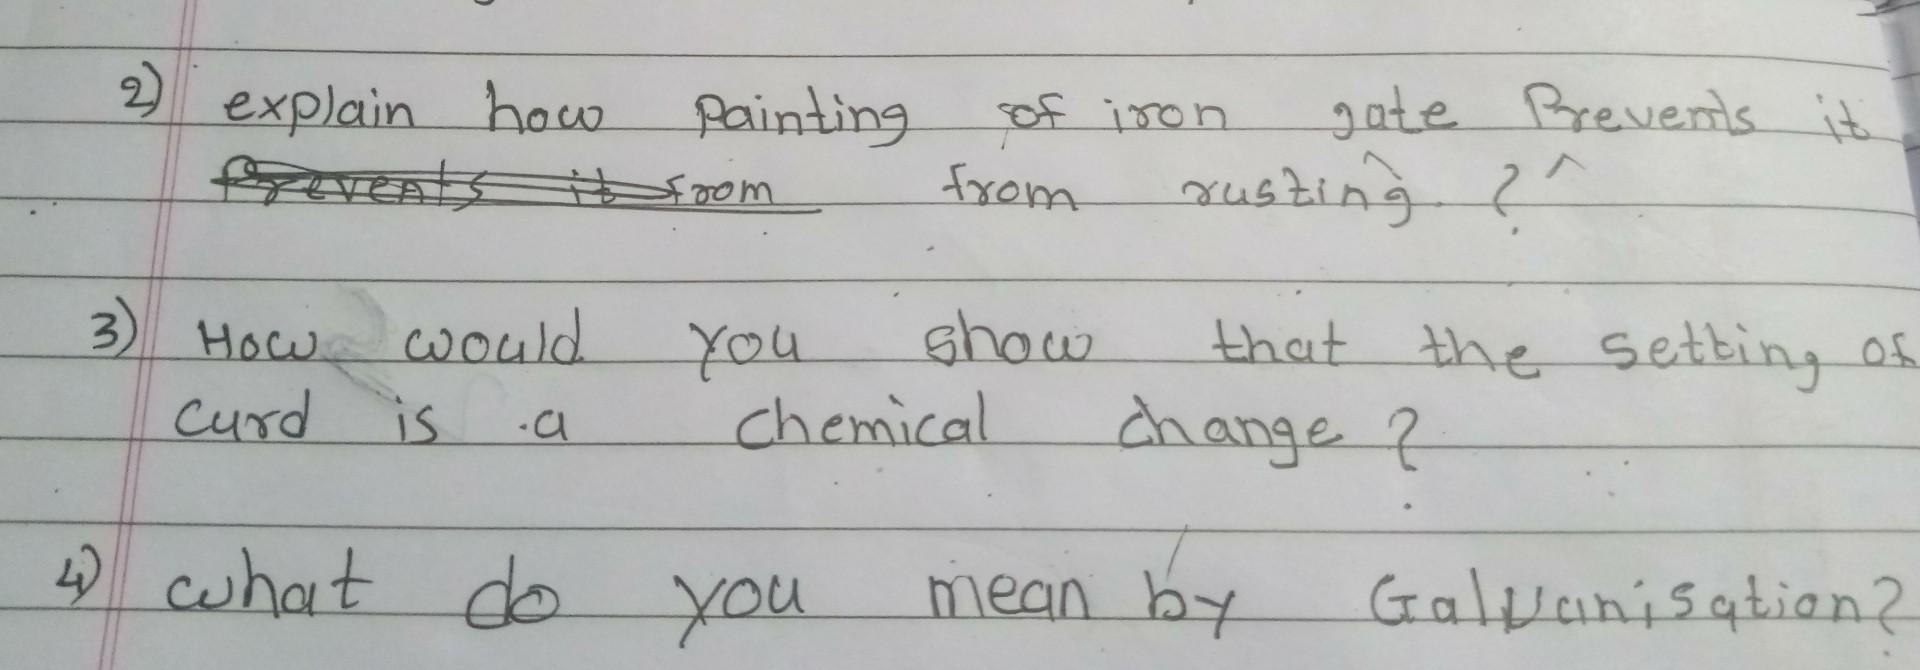 2) explain how Painting of iron gate Prevents it
Prevents it from from rusting. ?
3) How would you show that the setting of
curd is a chemical change ?
4) what do you mean by Galvanisation?